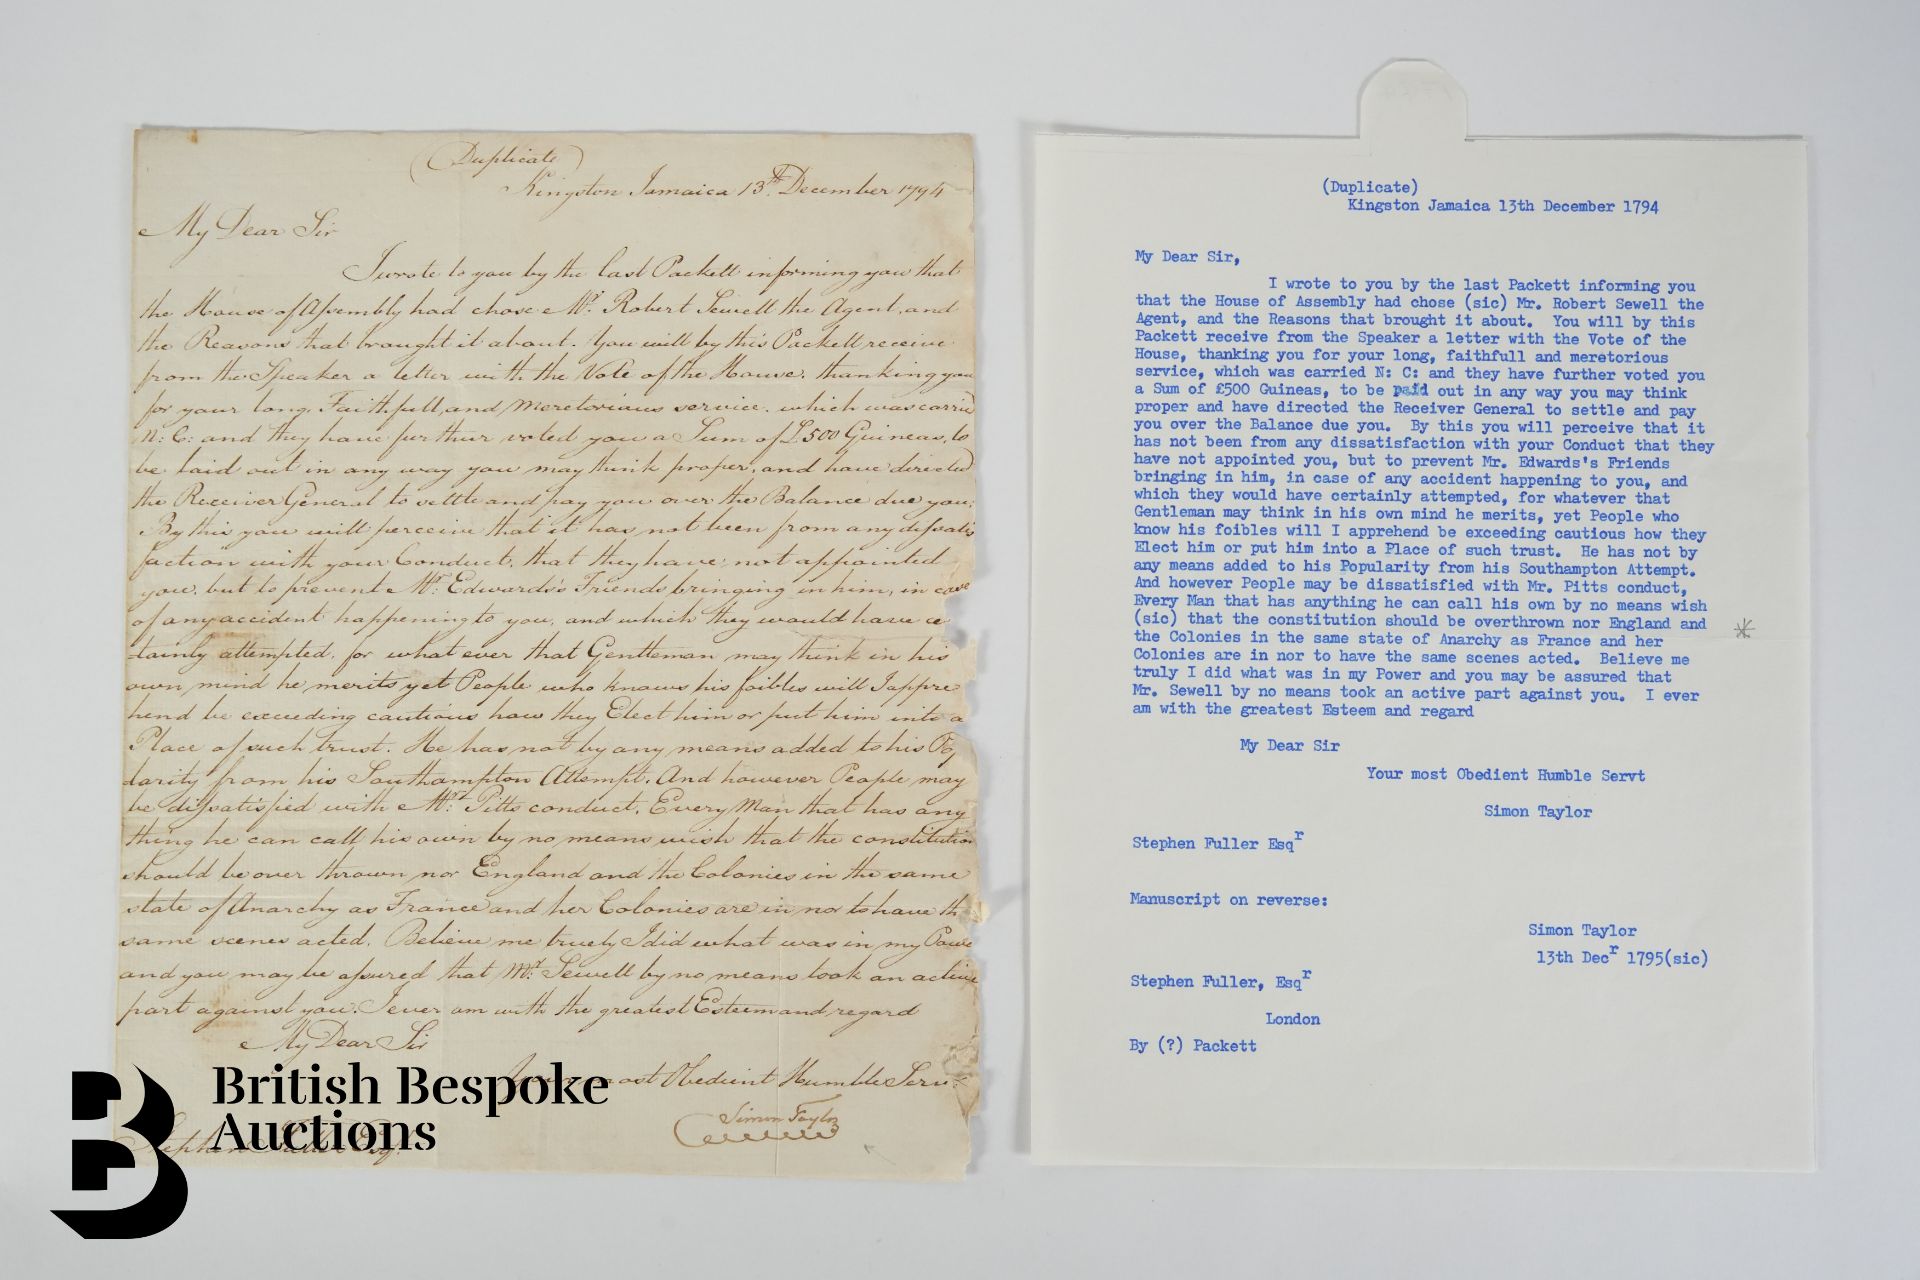 (Duplicate)
Kingston Jamaica 13th December 1794
My Dear Sir
I wrote to you by the last Packett informing you that
the House of Assembly had chose Mr. Robert Sewell the Agent, and
the Reasons that brought it about. You will by this Packett receive
from the Speaker a letter with the Vote of the House. thanking you
for your long, Faithfull, and Meretorious service. which was carried
N: C: and they have further voted you a Sum of £500 Guineas, to
be laid out in any way you may think proper, and have directed
the Receiver General to settle and pay you over the Balance due you;
By this you will perceive that it has not been from any dissatis
faction with your Conduct, that they have, not appointed
you. but to prevent Mr. Edwards's Friends bringing in him, in case
of any accident happening to you, and which they would have ce
tainly attempted. for what ever that Gentleman may think in his
own mind he merits yet People who knows his foibles will I appre
hend be exceeding cautious how they Elect him or put him into a
Place of such trust. He has not by any means added to his Po
larity from his Southampton Attempt. And however People may
be dissatisfied with Mr. Pitts conduct. Every Man that has any
thing he can call his own by no means wish that the constitution
should be over thrown nor England and the Colonies in the same
state of Anarchy as France and her Colonies are in nor to have th
same scenes acted. Believe me truely I did what was in my Powe
and you may be assured that Mr. Sewell by no means took an active
part against you. I ever am with the greatest Esteem and regard
My Dear Sir
Your most Obedient Humble Serv
Simon Taylor
Stephen Fuller Esqr.
British Bespoke
Auctions
(Duplicate)
Kingston Jamaica 13th December 1794
My Dear Sir,
I wrote to you by the last Packett informing you
that the House of Assembly had chose (sic) Mr. Robert Sewell the
Agent, and the Reasons that brought it about. You will by this
Packett receive from the Speaker a letter with the Vote of the
House, thanking you for your long, faithfull and meretorious
service, which was carried N: C: and they have further voted you
a Sum of £500 Guineas, to be paid out in any way you may think
proper and have directed the Receiver General to settle and pay
you over the Balance due you. By this you will perceive that it
has not been from any dissatisfaction with your Conduct that they
have not appointed you, but to prevent Mr. Edwards's Friends
bringing in him, in case of any accident happening to you, and
which they would have certainly attempted, for whatever that
Gentleman may think in his own mind he merits, yet People who
know his foibles will I apprehend be exceeding cautious how they
Elect him or put him into a Place of such trust. He has not by
any means added to his Popularity from his Southampton Attempt.
And however People may be dissatisfied with Mr. Pitts conduct,
Every Man that has anything he can call his own by no means wish
(sic) that the constitution should be overthrown nor England and
the Colonies in the same state of Anarchy as France and her
Colonies are in nor to have the same scenes acted. Believe me
truly I did what was in my Power and you may be assured that
Mr. Sewell by no means took an active part against you. I ever
am with the greatest Esteem and regard
My Dear Sir
Your most Obedient Humble Servt
Simon Taylor
Stephen Fuller Esqr
Manuscript on reverse:
Simon Taylor
13th Decr 1795(sic)
Stephen Fuller, Esqr
London
By (?) Packett